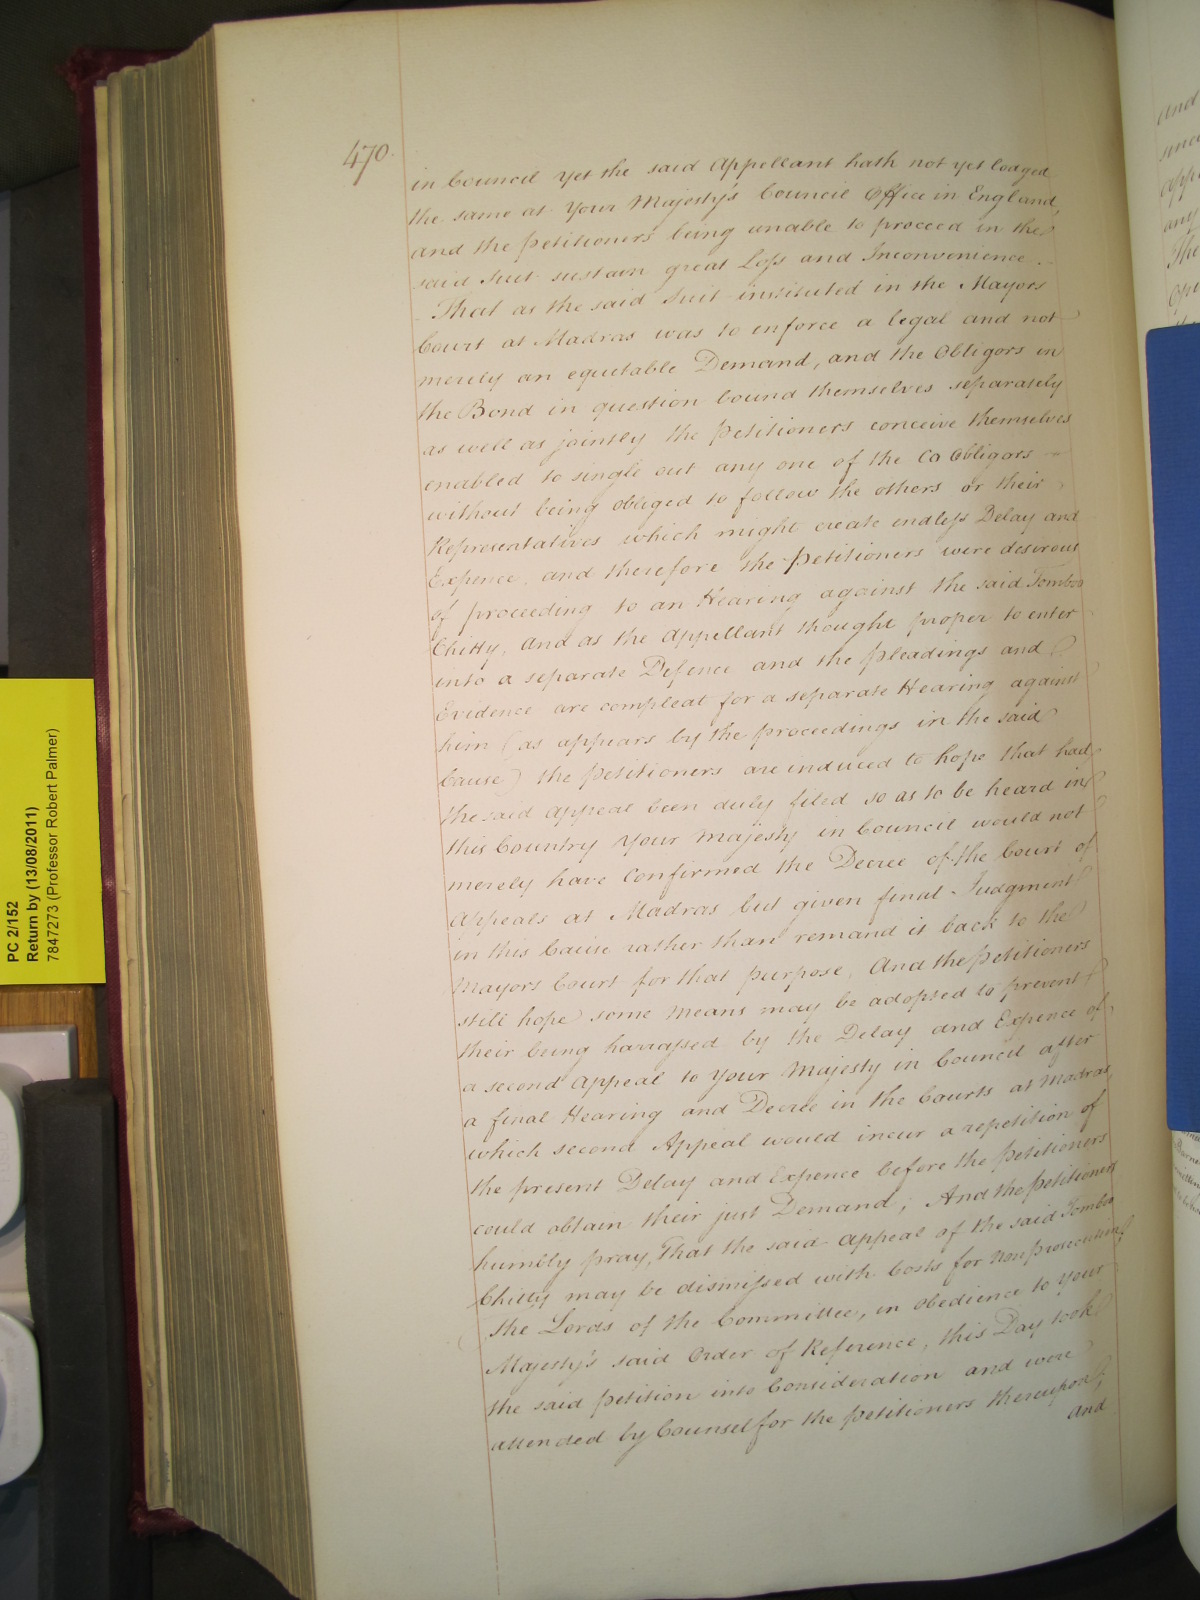 470.
in Council yet the said Appellant hath not yet lodged
the same at Your Majesty's Council Office in England,
and the Petitioners being unable to proceed in the
said Suit sustain great Loss and Inconvenience.
That as the said Suit instituted in the Mayors
Court at Madras was to enforce a legal and not
merely an equitable Demand, and the Obligors in
the Bond in question bound themselves separately
as well as jointly the Petitioners conceive themselves
enabled to single out any one of the Co Obligors
without being obliged to follow the others or their
Representatives which might create endless Delay and
Expence, and therefore the Petitioners were desirous
of proceeding to an Hearing against the said Tomboo
Chitty, and as the Appellant thought proper to enter
into a separate Defence and the pleadings and
Evidence are compleat for a separate Hearing against
him (as appears by the proceedings in the said
Cause) the Petitioners are induced to hope that had
the said Appeal been duly filed so as to be heard in
this Country Your Majesty in Council would not
merely have Confirmed the Decree of the Court of
Appeals at Madras but given final Judgment
in this Cause rather than remand it back to the
Mayors Court for that purpose, And the Petitioners
still hope some Means may be adopted to prevent
their being harrassed by the Delay and Expence of
a second Appeal to Your Majesty in Council after
a final Hearing and Decree in the Courts at Madras,
which second Appeal would incur a repetition of
the present Delay and Expence before the Petitioners
could obtain their just Demand; And the Petitioners
humbly pray, That the said Appeal of the said Tomboo
Chitty may be dismissed with Costs for Non Prosecution,
The Lords of the Committee, in obedience to Your
Majesty's said Order of Reference, this Day took
the said Petition into Consideration and were
attended by Counsel for the Petitioners thereupon;
and
PC 2/152
Return by (13/08/2011)
7847273 (Professor Robert Palmer)
and
since
any
The